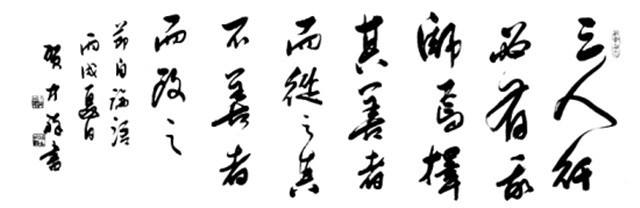 三人行
必有我
師焉擇
其善者
而從之其
不善者
而改之
節自論語
丙戌夏日
賀才 書